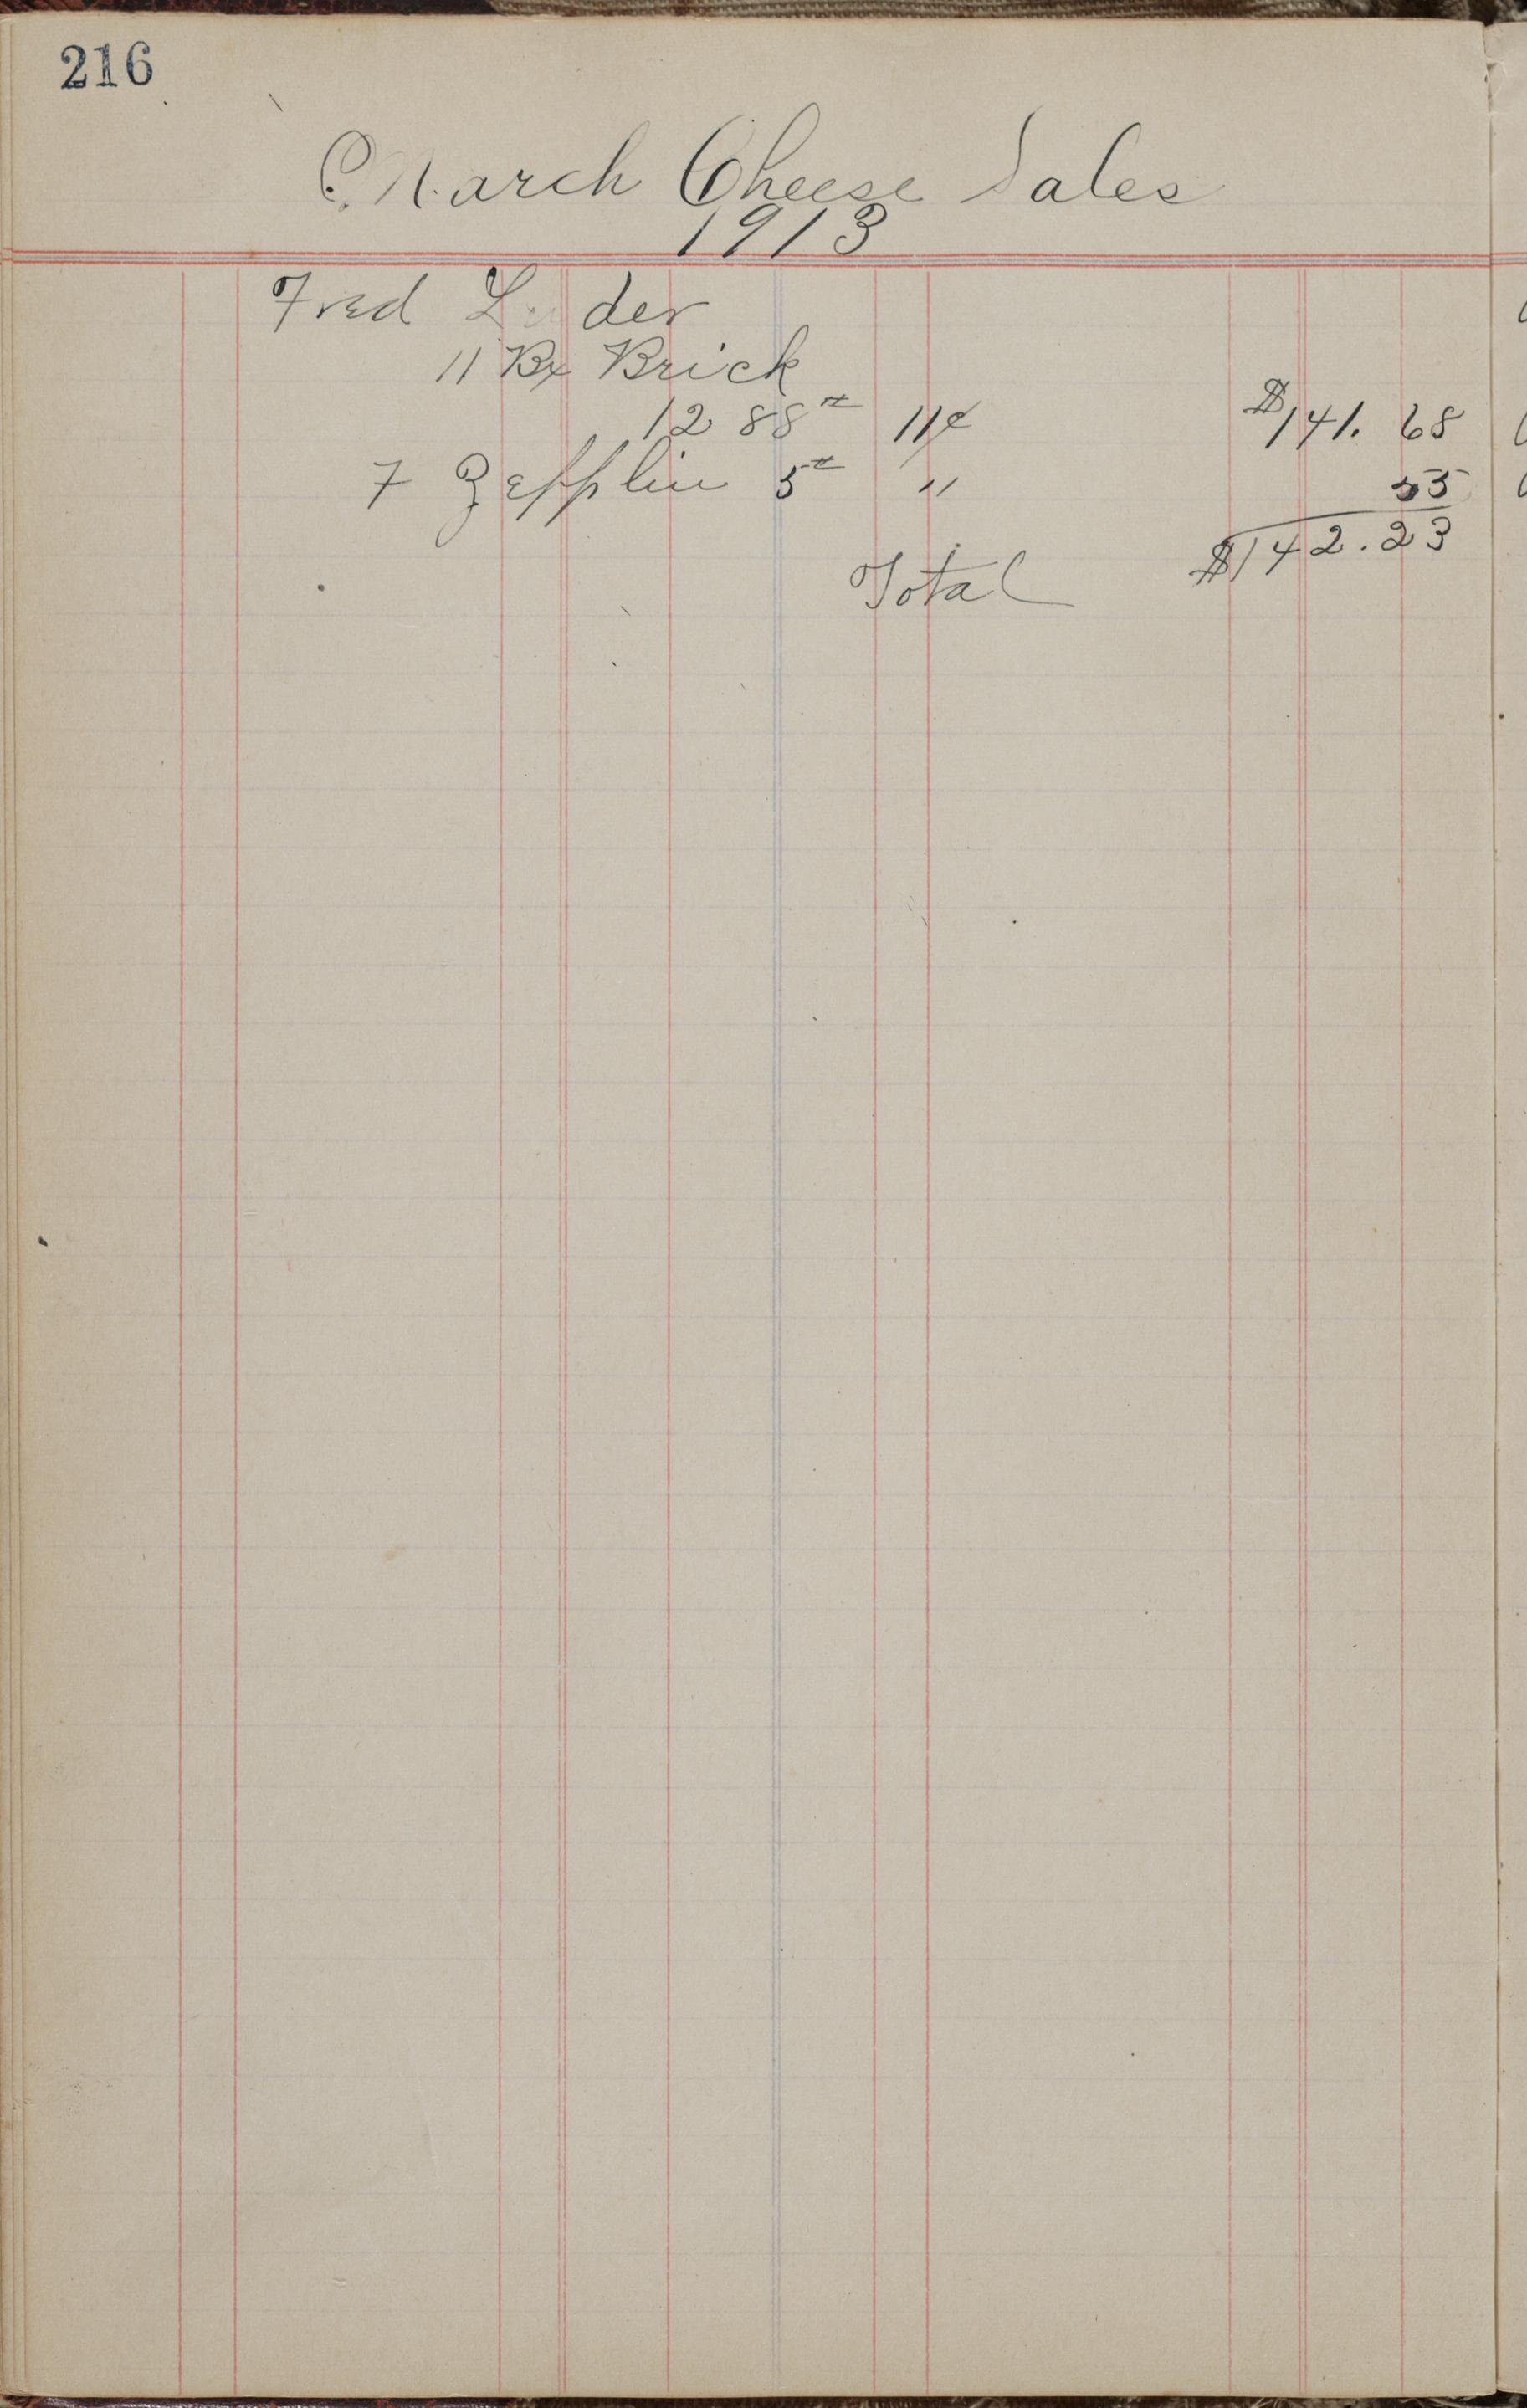 216
March Cheese Sales
1913
Fred
11 Bx Brick
1288# 11¢ $141.68
F Zepplin 5# " 55
$142.23
Total